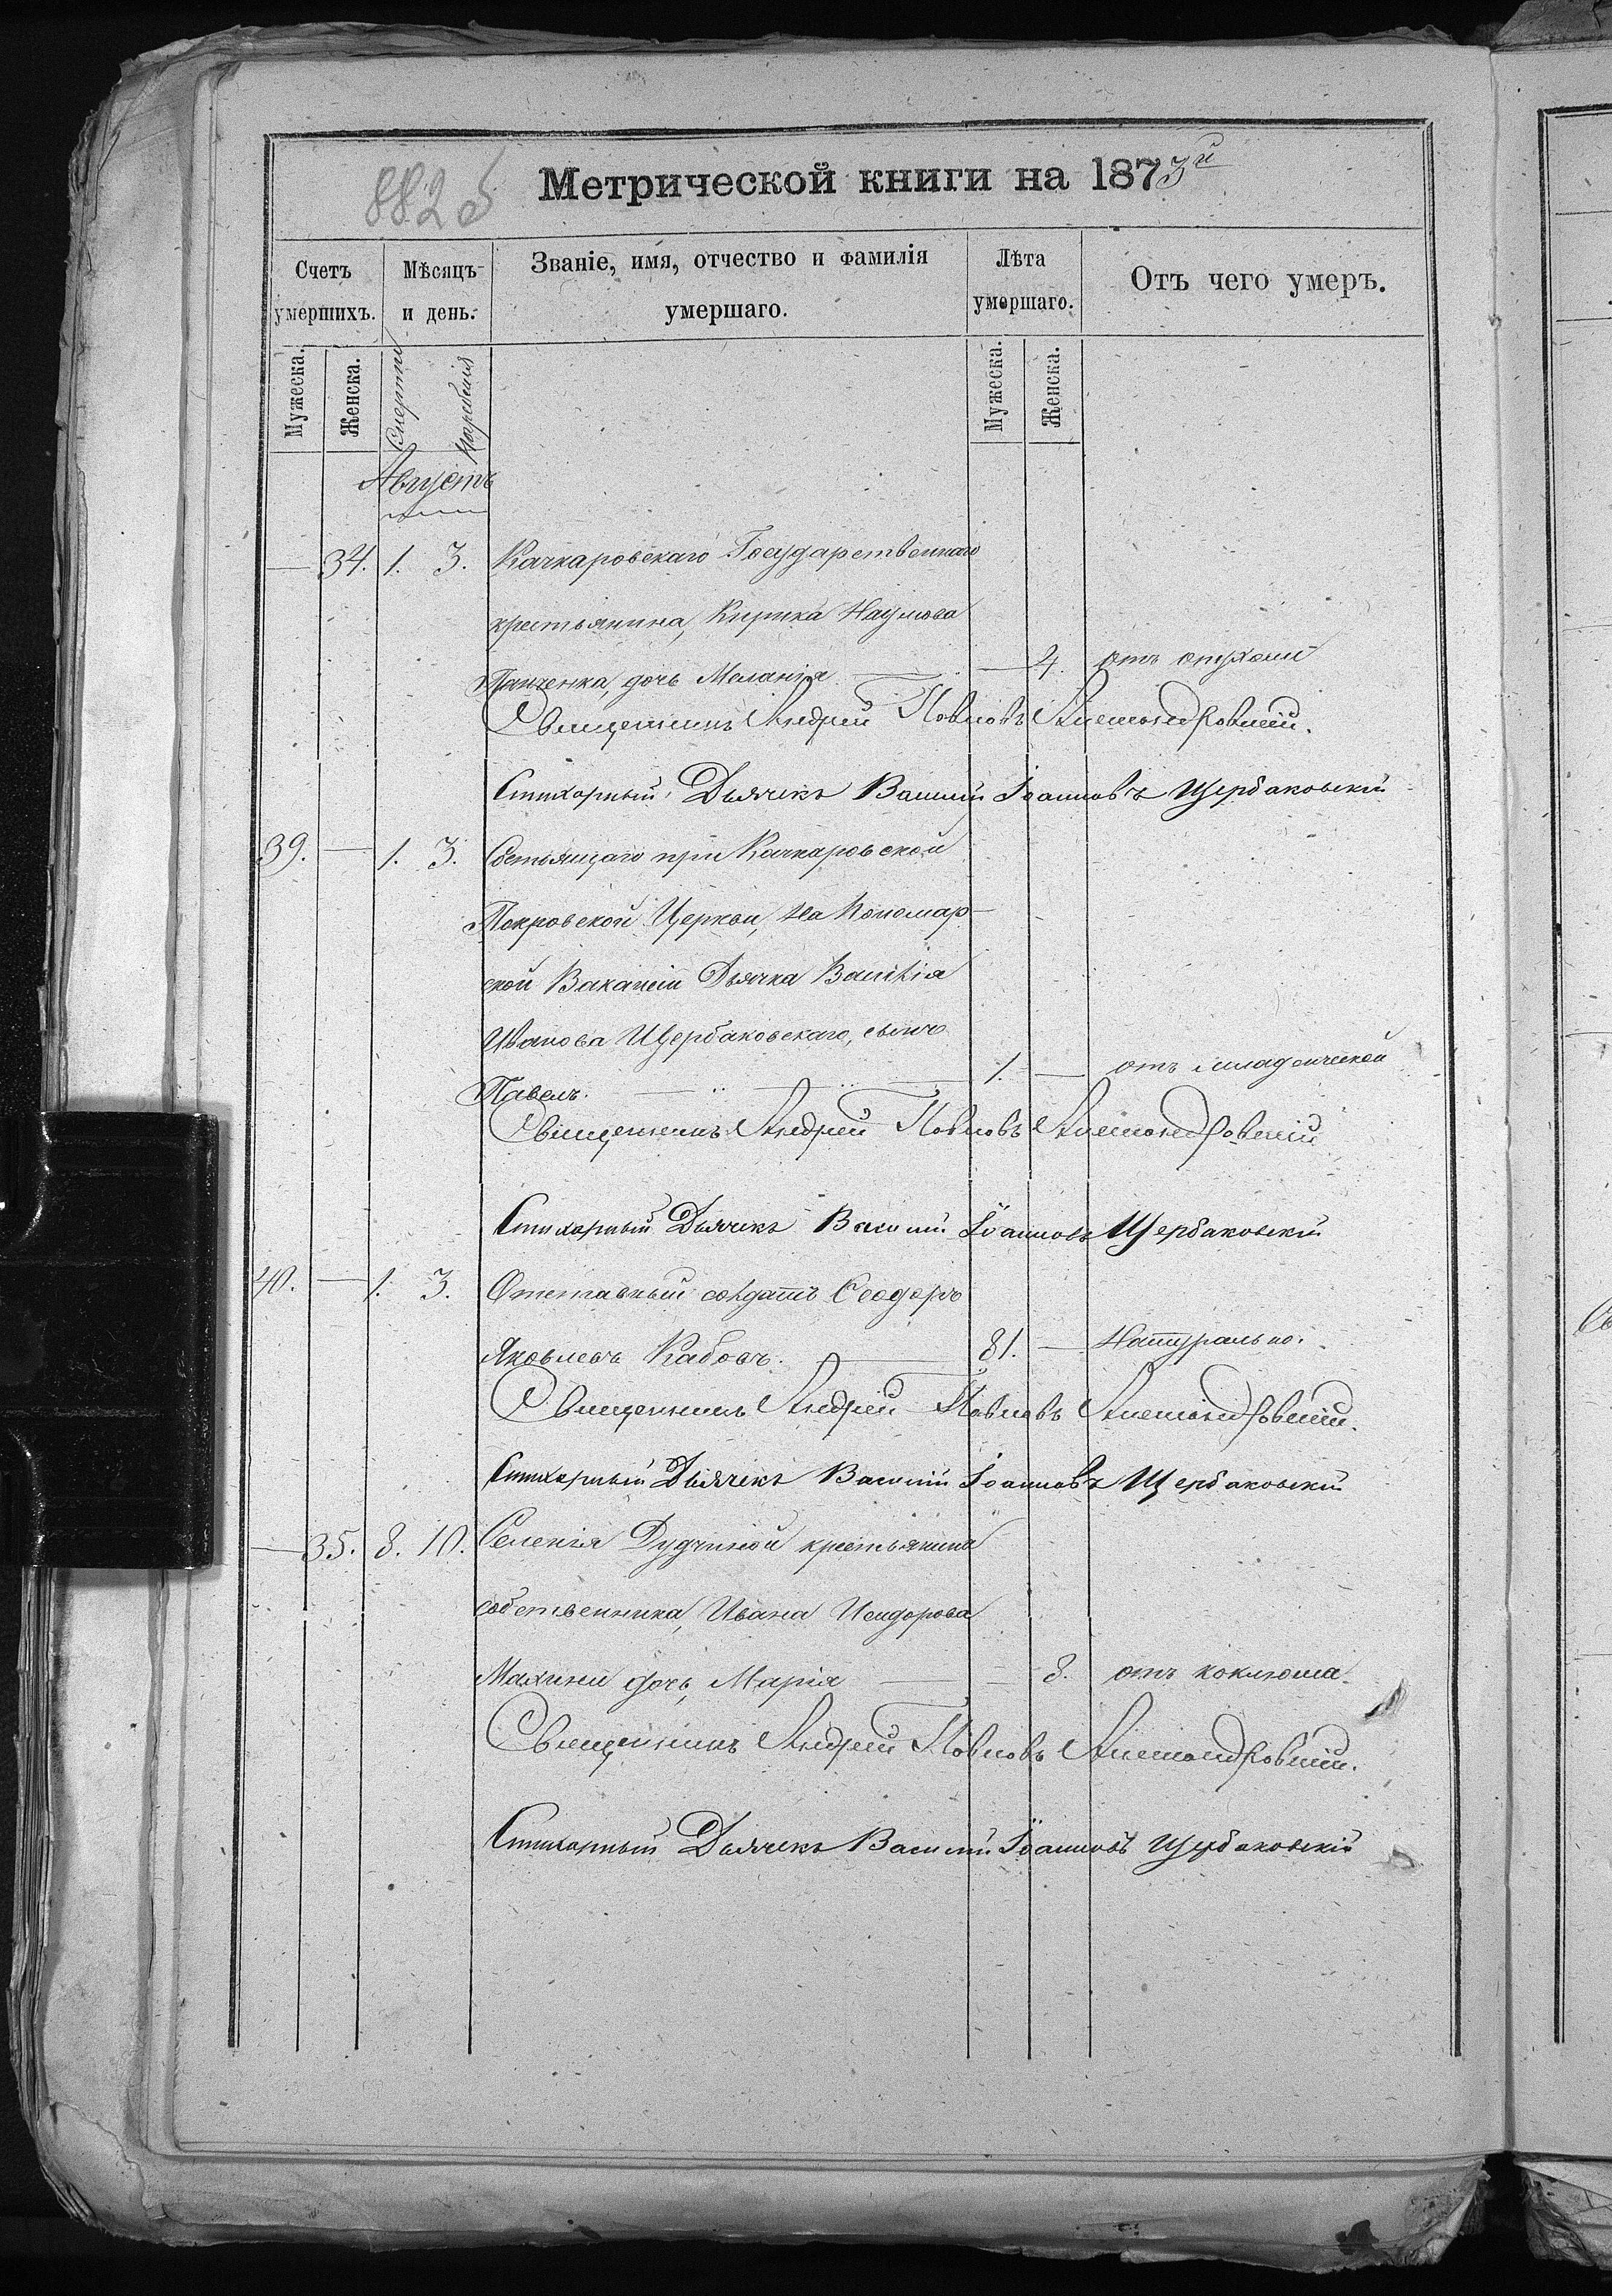 8825
Метрической книги на 1873й
Счетъ умершихъ.
Мѣсяцъ и день.
Званіе, имя, отчество и фамилія умершаго.
Лѣта умершаго.
Отъ чего умеръ.
Мужеска.
Женска.
Смерти
Погребенія
Мужеска.
Женска.
Августъ
— 34. 1. 3. Качкаровскаго Государственнаго
крестьянина, Кирика Наумова
Панченка, дочь Меланія — — 4. отъ опухоли
Священникъ Андрей Павловъ Александровскій.
Стихарный Дьячекъ Василій Іоанновъ Щербаковскій
39. — 1. 3. Состоящаго при Качкаровской
Покровской Церкви, на Пономар-
ской Вакансіи Дьячка Василія
Иванова Щербаковскаго, сынъ
Павелъ. — 1. — отъ младенческой
Священникъ Андрей Павловъ Александровскій
Стихарный Дьячекъ Василій Іоанновъ Щербаковскій
40. — 1. 3. Отставный солдатъ Ѳеодоръ
Яковлевъ Кабовъ. — 81. — Натурально.
Священникъ Андрей Павловъ Александровскій.
Стихарный Дьячекъ Василій Іоанновъ Щербаковскій
— 35. 8. 10. Селенія Дудчиной крестьянина
собственника, Ивана Исидорова
Махини дочь, Марія — — 8. отъ коклюша.
Священникъ Андрей Павловъ Александровскій.
Стихарный Дьячекъ Василій Іоанновъ Щербаковскій